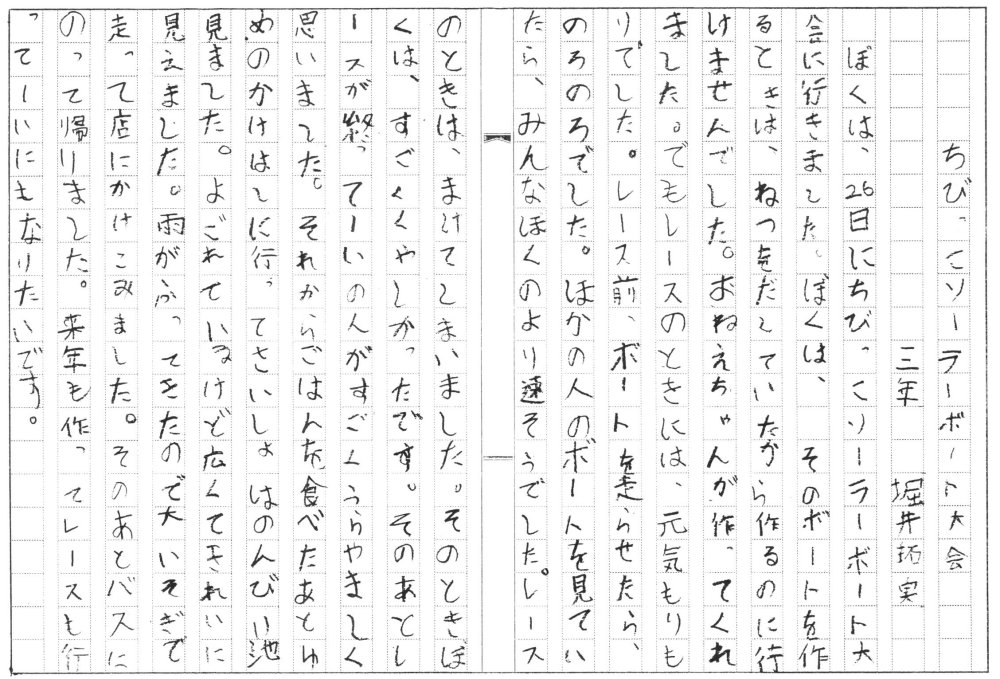 ちびっこソーラーボート大会
三年 堀井拓実
ぼくは、26日にちびっこソーラーボート大
会に行きました。ぼくは、 そのボートを作
るときは、ねつをだしていたから作るのに行
けませんでした。おねえちゃんが作ってくれ
ました。でもレースのときには、元気もりも
りでした。レース前、ボートを走らせたら、
のろのろでした。ほかの人のボートを見てい
たら、みんなぼくのより速そうでした。レース
のときは、まけてしまいました。そのときぼ
くは、すごくくやしかったです。そのあとレ
ースが終ってーいのんがすごくうらやましく
思いました。それからごはんを食べたあとゆ
めのかけはしに行ってさいしょはのんびい池
見ました。よごれているけど広くてきれいに
見えました。雨がふってきたので大いそぎで
走って店にかけこみました。そのあとバスに
のって帰りました。来年も作ってレースも行
ってーいにもなりたいです。